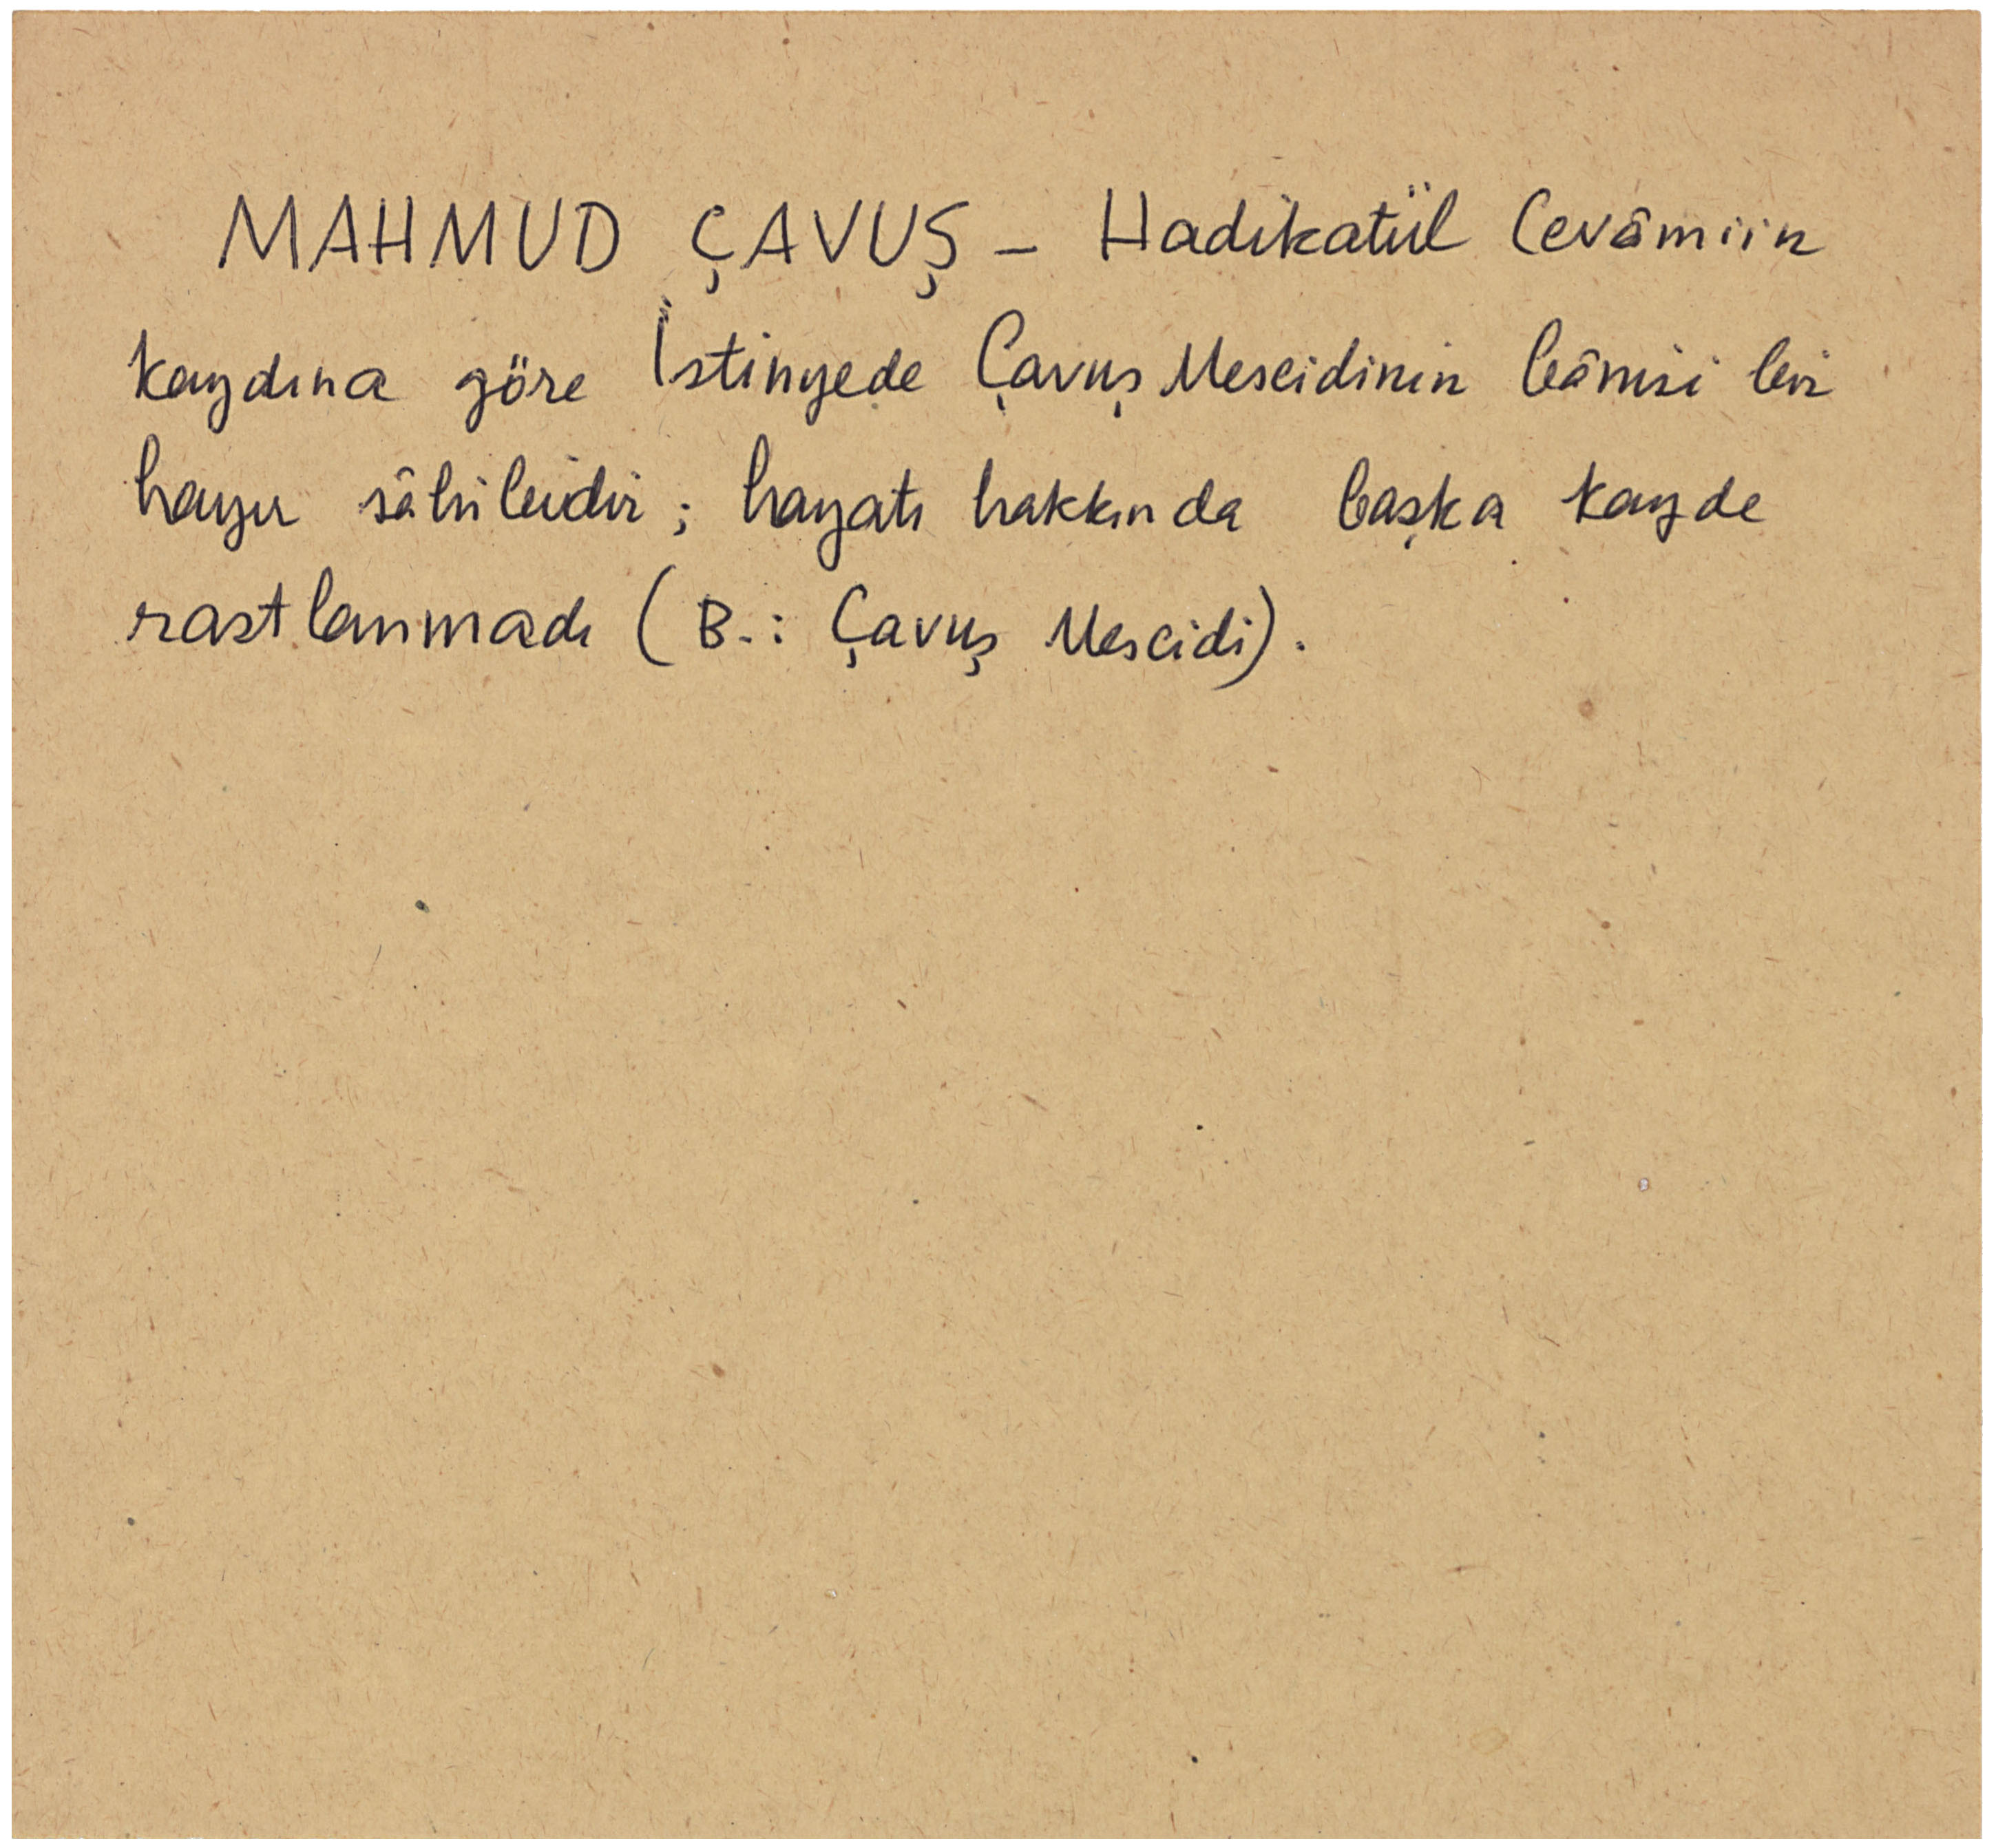 MAHMUD ÇAVUŞ - Hadikatül Cevâmiin
kaydına göre İstinyede Çavuş Mescidinin bânisi bir
hayır sâhibidir; hayatı hakkında başka kayde
rastlanmadı (B.: Çavuş Mescidi).